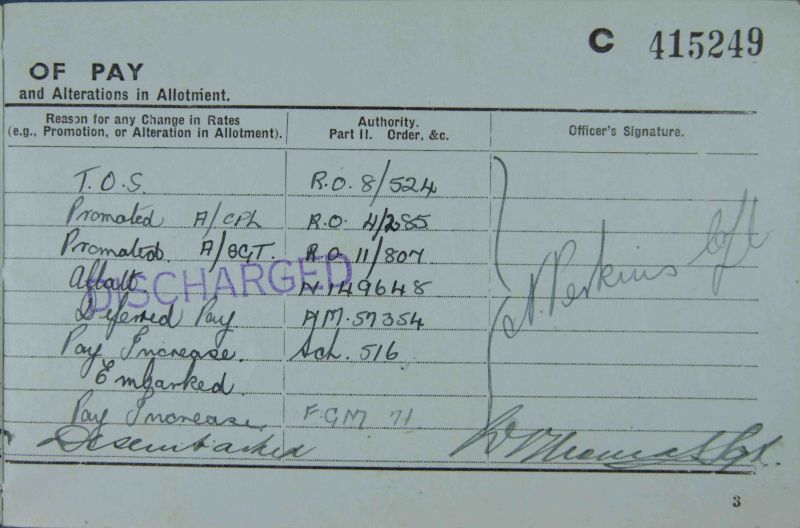 C 415249
OF PAY
and Alterations in Allotment.
Reason for any Change in Rates
(e.g., Promotion, or Alteration in Allotment).
Authority.
Part II. Order, &c.
Officer's Signature.
T.O.S. R.O. 8/524
Promoted A/CPL R.O. 4/285
Promoted A/SGT. R.O. 11/807
DISCHARGED
Allalt N149648
Deferred Pay AM.57354
N. Perkins
Pay Increase. Sch. 516
Embarked.
Pay Increase. FGM 71
Disembarked Sgt.
3